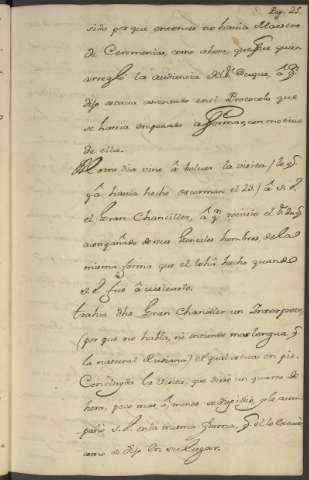 Pag. 25.
sido porque entonces no havia Maestro
de Ceremonias, como ahora, que fue quien
arregló la audiencia del Sr. Duque, á q.
dijo estava anotado en el Protocolo que
se havia empezado a formar, con motivo
de ella.
El otro dia vino á bolver la visita
ya havia hecho á S. E.
el Gran Chanciller, á qn. recivió el Sr. Duq.
acompañado de sus Gentiles hombres, de la
misma forma que el lo hà hecho quando
S. E. fue á visitarlo.
trahia dho. Gran Chanciller un Interprete,
(por que no habla, ni entiende mas lengua, q.
la natural Rusiana) el qual estava en pie.
Concluyda la visita, que duró un quarto de
hora, poco mas, ó menos se despidió, y le acom-
pañó S. E. en la misma forma, q. el lo
como se dijo en su lugar.